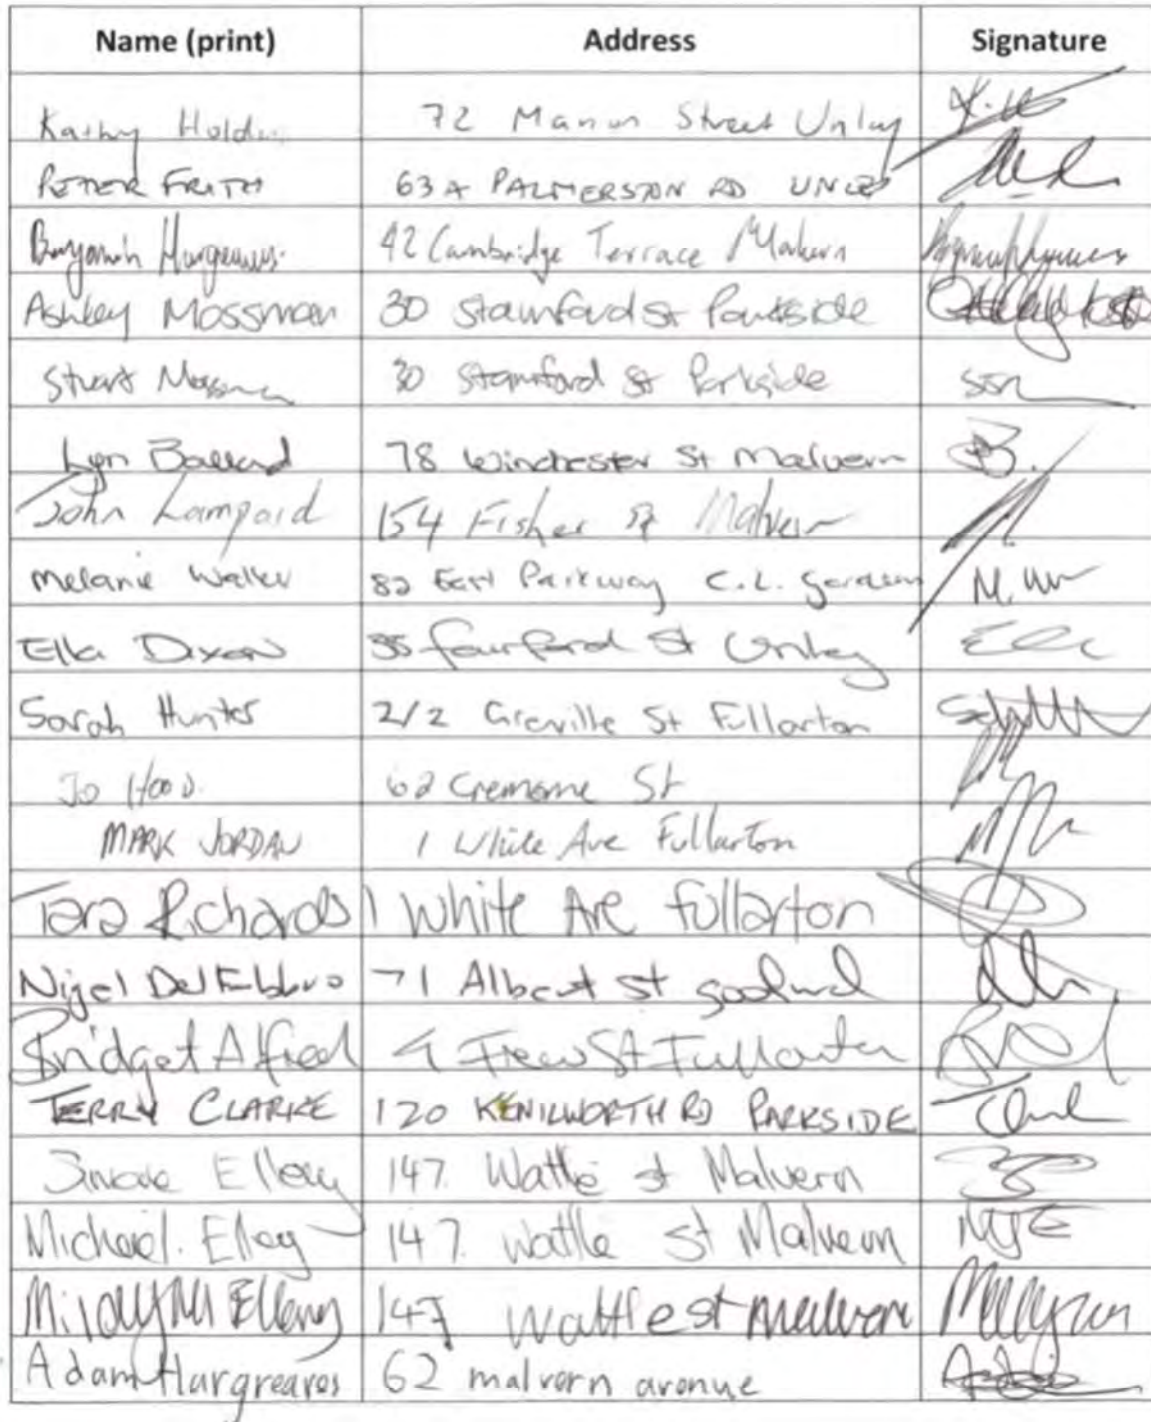 Name (print) Address Signature
Kathy 72 Street Unley
PETER FRITH 63A PALMERSTON RD UNLEY
Benjamin Hargreaves. 42 Cambridge Terrace Malvern
Ashley Mossman 30 Stamford St Parkside
Stuart 30 Stamford St Parkside
Lyn Ballard 78 Winchester St Malvern
John Lampard 154 Fisher St Malvern
Melanie Waller 82 East Parkway C.L. Gardens M.W
Ella Dixon Fairford St Unley
Sarah Hunter 2/2 Greville St Fullarton
Jo Hood. 62 Cremorne St
MARK JORDAN 1 White Ave Fullarton
Tara Richards 1 White Ave fullarton
Nigel Del Fabbro 71 Albert st goodwood
Bridget Alfred 4 Frew St Fullarton
TERRY CLARKE 120 KENILWORTH RD PARKSIDE
Elley 147. Wattle st Malvern
Michael. Elley 147. Wattle St Malvern MJE
Elleny 147 Wattle st malvern
Adam Hargreaves 62 malvern avenue